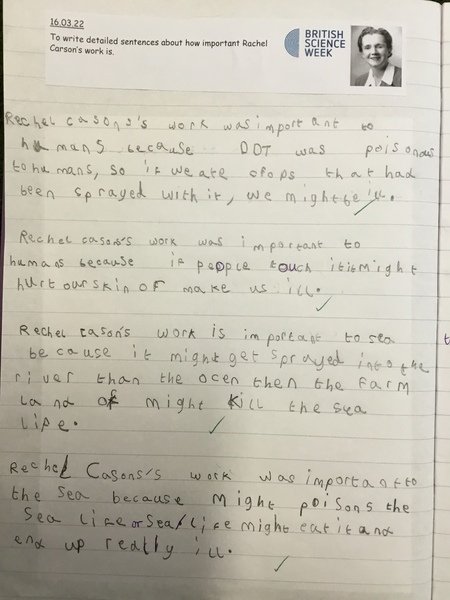 16.03.22
To write detailed sentences about how important Rachel
Carson's work is.
BRITISH
SCIENCE
WEEK
Rechel casons's work was important to
humans because DDT was poisonous
to humans, so if we ate crops that had
been sprayed with it, we might be ill.
Rechel cason's work was important to
humans because if people touch it it might
hurt our skin or make us ill.
Rechel cason's work is important to sea
because it might get sprayed into the
river than the ocen then the farm
land of might kill the sea
life.
Rechel Casons's work was important to
the sea because might poisons the
sea life or sea life might eat it and
end up really ill.